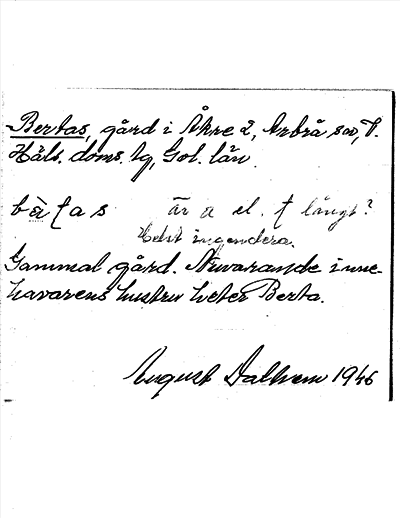 Bertas, gård i Åkre 2, Arbrå sn, V.
Häls. doms. tg, Gvl. län.
bàʈas är a el. ʈ långt?
Helst ingendera.
Gammal gård. Nuvarande inne-
havarens hustru heter Berta.
August Dalhem 1946